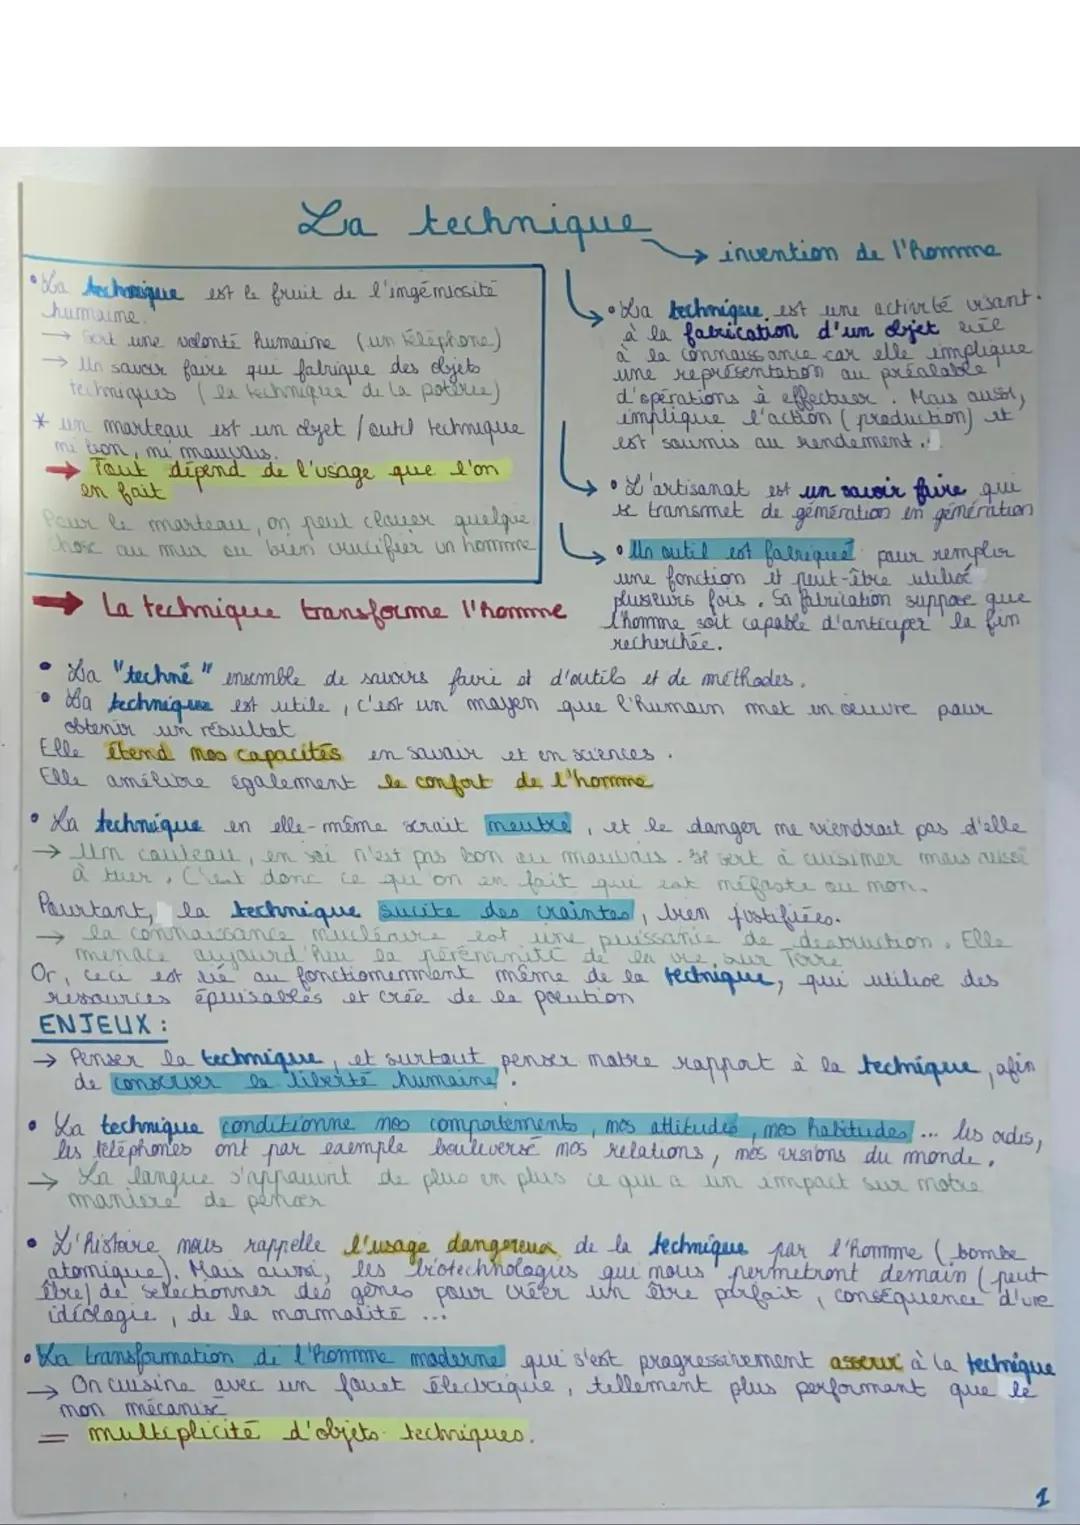 La technique
→ invention de l'homme
• La technique est le fruit de l'ingéniosité
humaine.
→ Sert une volonté humaine (un téléphone)
→ Un savoir faire qui fabrique des objets
techniques (la technique de la poterie)
* un marteau est un objet / outil technique
ni bon, ni mauvais.
→ Tout dépend de l'usage que l'on
en fait
Pour le marteau, on peut clouer quelque
chose au mur ou bien crucifier un homme
• La technique est une activité visant
à la fabrication d'un objet
à la connaissance car elle implique
une représentation au préalable
d'opérations à effectuer. Mais aussi,
implique l'action (production) et
est soumis au rendement.
• L'artisanat est un savoir faire qui
se transmet de génération en génération
• Un outil est fabriqué pour remplir
une fonction et peut-être utilisé
plusieurs fois. Sa fabrication suppose que
l'homme soit capable d'anticiper la fin
recherchée.
→ La technique transforme l'homme
• La "techné" ensemble de savoirs faire et d'outils et de méthodes.
• La technique est utile, c'est un moyen que l'humain met en œuvre pour
obtenir un résultat
Elle étend nos capacités en savoir et en sciences.
Elle améliore également le confort de l'homme
• La technique en elle-même serait neutre, et le danger ne viendrait pas d'elle
→ Un couteau, en soi n'est pas bon ou mauvais. Il sert à cuisiner mais aussi
à tuer. C'est donc ce qu'on en fait qui est méfaste ou non.
Pourtant, la technique sucite des craintes, bien justifiées.
→ la connaissance nucléaire est une puissance de destruction. Elle
menace aujourd'hui la pérennité de la vie sur Terre
Or, ceci est lié au fonctionnement même de la technique, qui utilise des
ressources épuisables et crée de la polution
ENJEUX :
→ Penser la technique, et surtout penser notre rapport à la technique, afin
de conserver la liberté humaine.
• La technique conditionne nos comportements, nos attitudes, nos habitudes ... les ordis,
les téléphones ont par exemple bouleversé nos relations, nos visions du monde.
→ La langue s'appauvrit de plus en plus ce qui a un impact sur notre
manière de penser
• L'histoire nous rappelle l'usage dangereux de la technique par l'homme (bombe
atomique). Mais aussi, les biotechnologies qui nous permetront demain (peut
être) de selectionner des gènes pour créer un être parfait, conséquence d'une
idéologie, de la normalité ...
• La transformation de l'homme moderne qui s'est progressivement asservi à la technique
→ On cuisine avec un fouet électrique, tellement plus performant que le
non mécanisé
= multiplicité d'objets techniques.
1